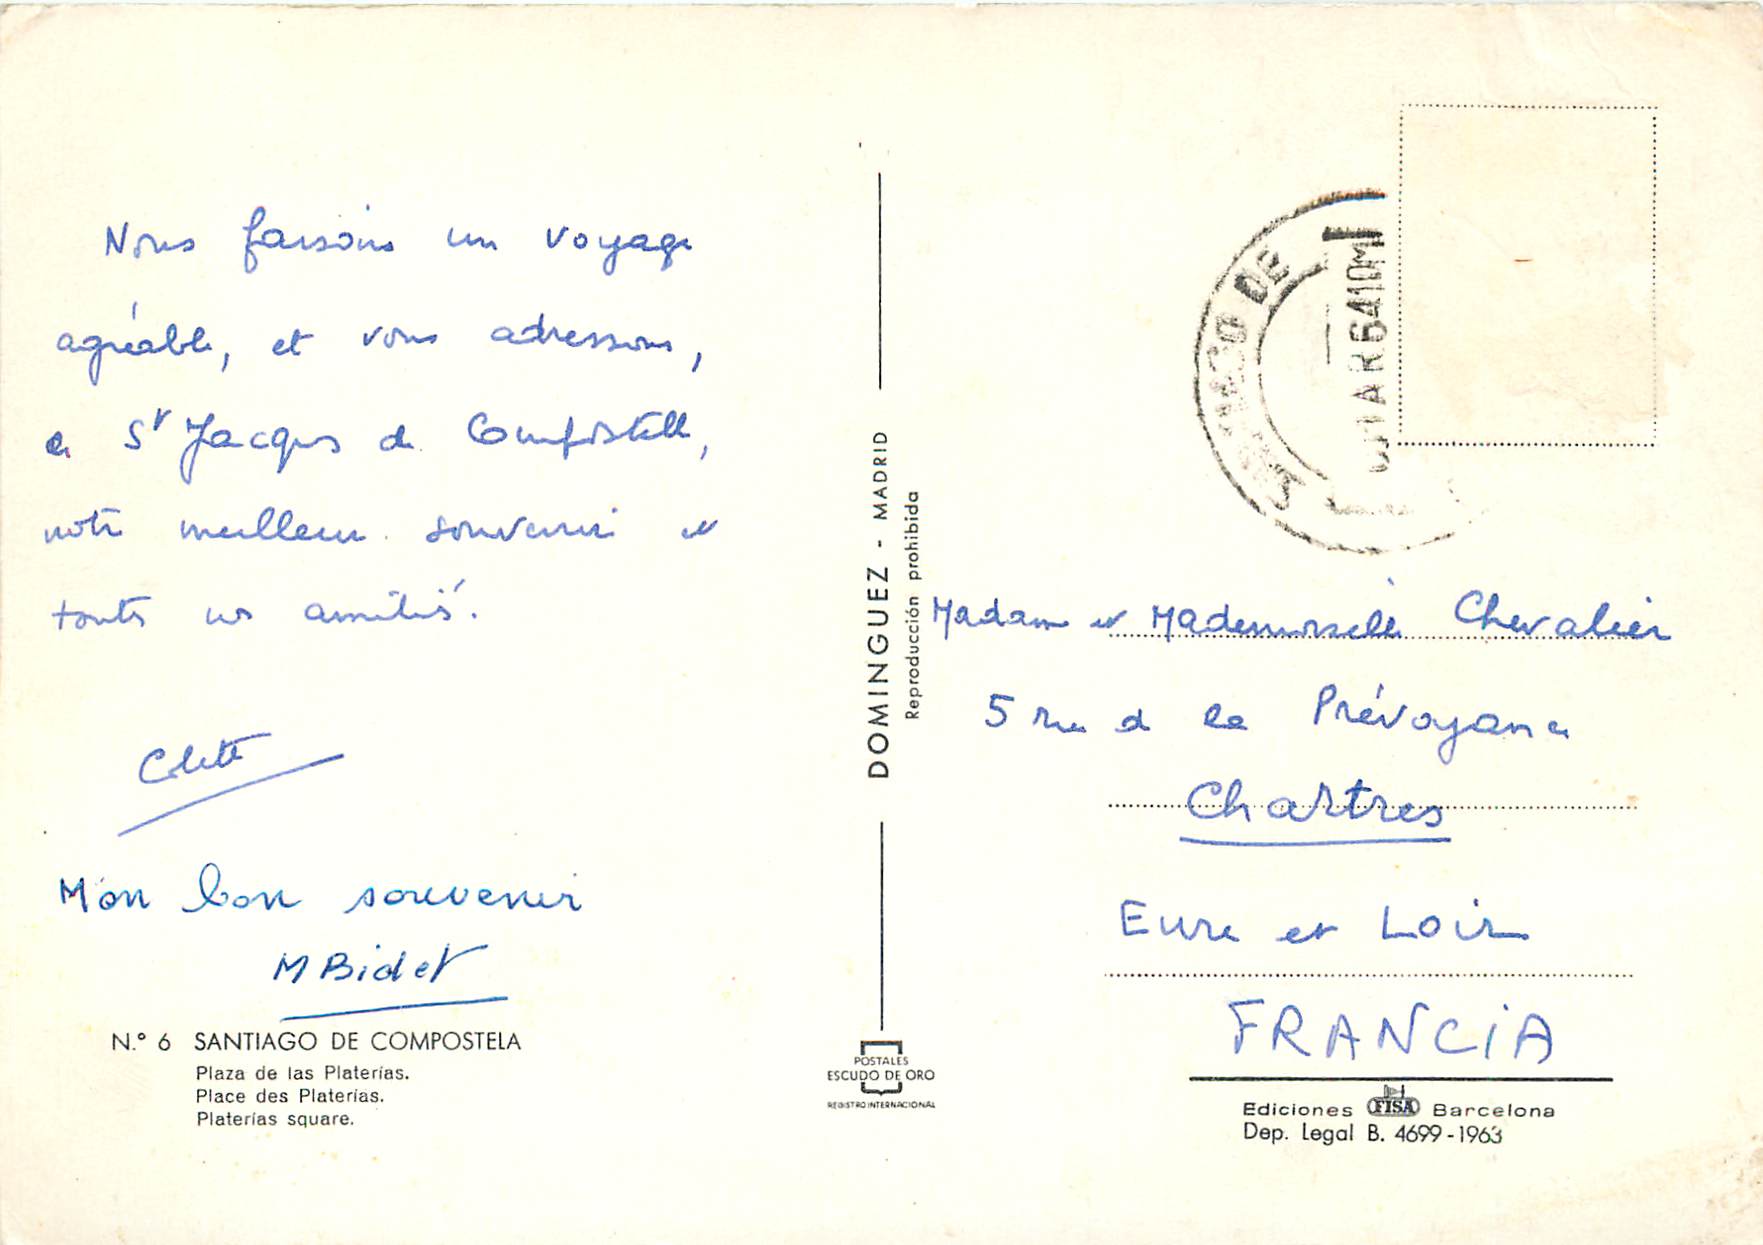 Nous faisons un voyage
agréable, et vous adressons,
de St Jacques de Compostelle,
notre meilleur souvenir et
toutes nos amitiés.
Colette
Mon bon souvenir
M Bidet
N.º 6 SANTIAGO DE COMPOSTELA
Plaza de las Platerías.
Place des Platerías.
Platerías square.
DOMINGUEZ - MADRID
Reproducción prohibida
POSTALES
ESCUDO DE ORO
REGISTRO INTERNACIONAL
DE
MAR 64 10M
Madame et Mademoiselle Chevalier
5 rue de la Prévoyance
Chartres
Eure et Loir
FRANCiA
Ediciones FISA Barcelona
Dep. Legal B. 4699-1963